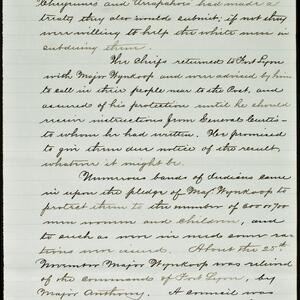 Cheyennes and Arrapahoes had made a
treaty they also would submit; if not they
were willing to help the white men in
subduing them.
The Chiefs returned to Fort Lyon
with Major Wynkoop and were advised by him
to call in their people near to the Post, and
assured of his protection until he should
receive instructions from General Curtis-
to whom he had written. He promised
to give them due notice of the result,
whatever it might be.
Numerous bands of Indians came
in upon the pledge of Maj Wynkoop to
protect them to the number of 600 or 700
men women and children, and
to such as were in need some ra-
tions were issued. About the 25th
November Major Wynkoop was relieved
of the command of Fort Lyon, by
Major Anthony. A council was